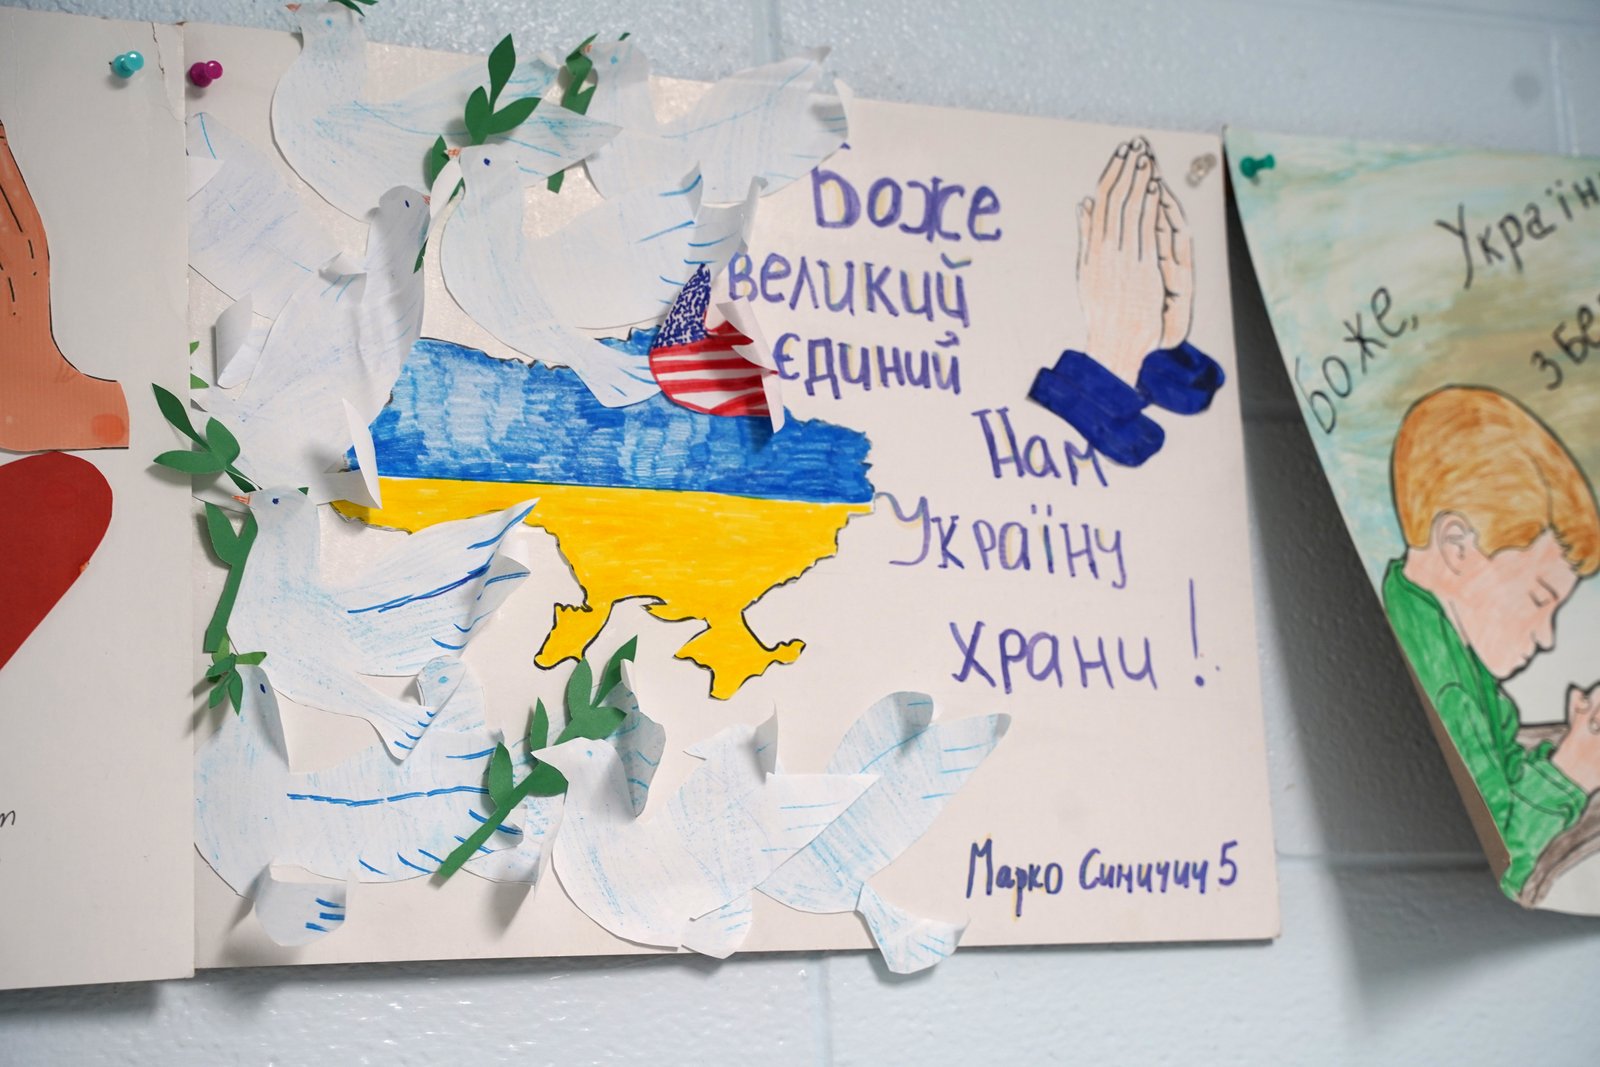 Боже
великий
єдиний
Нам
Україну
храни!
Марко Синичич 5
Боже,